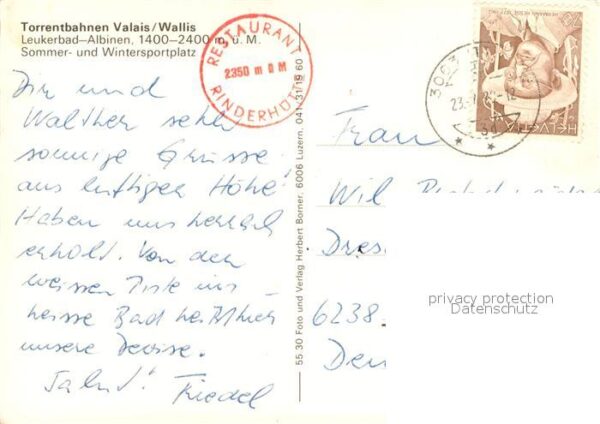 Torrentbahnen Valais/Wallis
Leukerbad–Albinen, 1400–2400 m. ü. M.
Sommer- und Wintersportplatz
RESTAURANT
2350 m ü M
RINDERHÜTTE
Dir und
Walther sehr
sonnige Grüsse
aus luftiger Höhe!
Haben uns herrlich
erholt. Von der
weissen Piste ins
heisse Bad heisst hier
unsere Devise.
Salut! Friedel
55 30 Foto und Verlag Herbert Borner, 6006 Luzern, 041/31 19 60
HELVETIA
Frau
Wil
Dres
6238
Den
privacy protection
Datenschutz